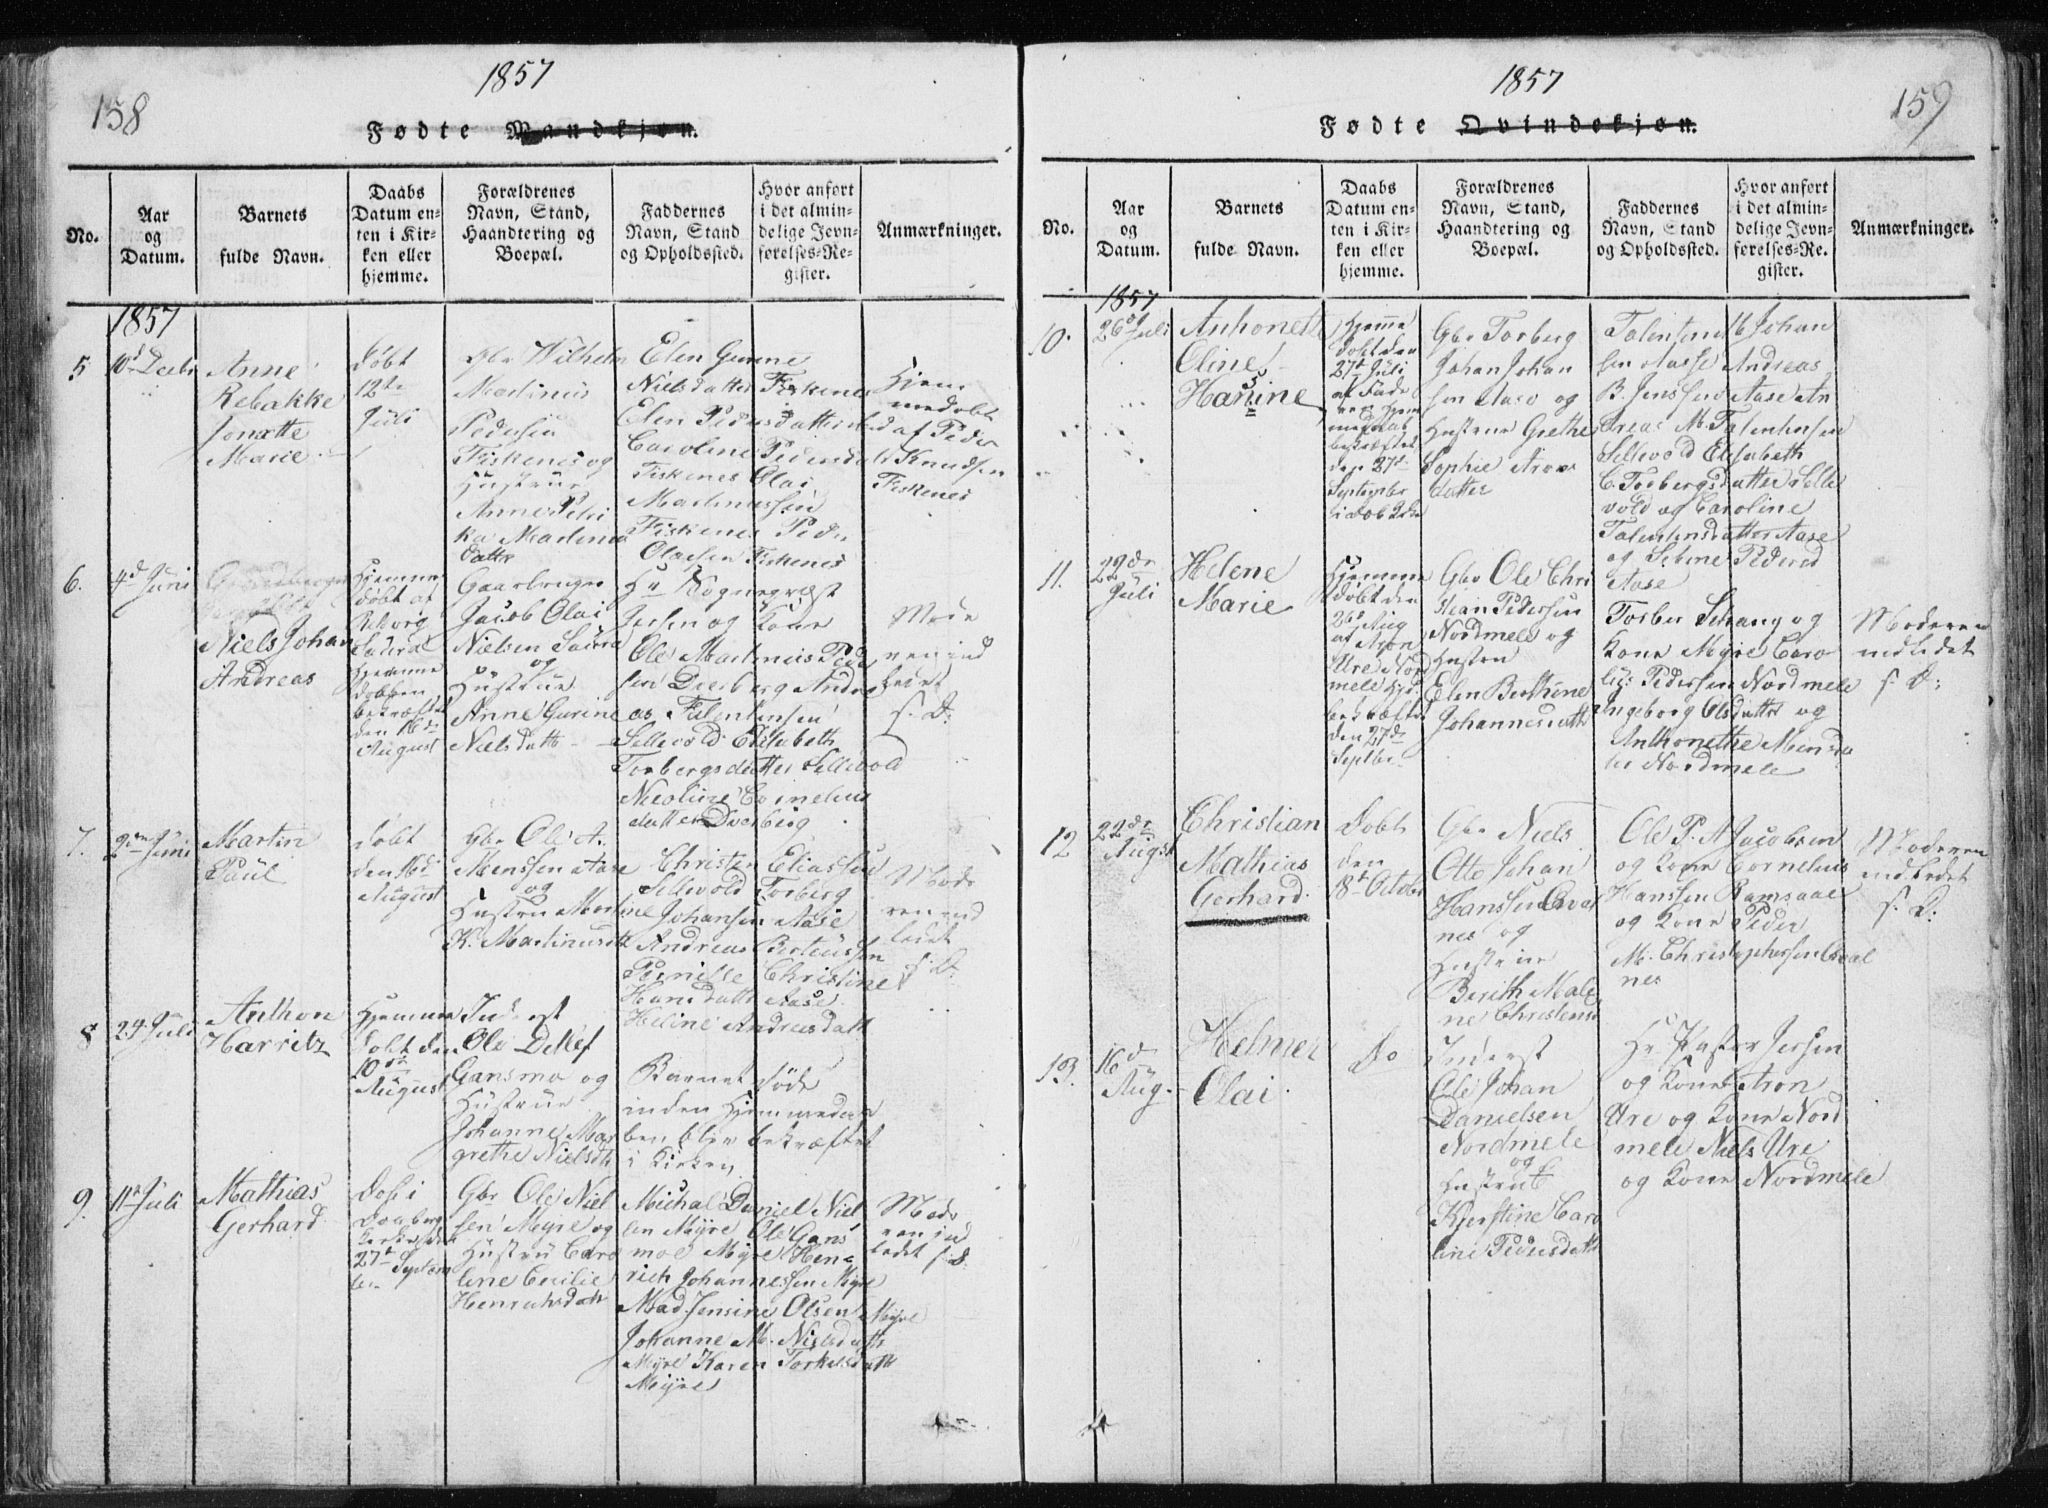 158
1857
Fødte Mandkjøn.
No.
Aar
og
Datum.
Barnets
fulde Navn.
Daabs
Datum en-
ten i Kir-
ken eller
hjemme.
Forældrenes
Navn, Stand,
Haandtering og
Boepæl.
Faddernes
Navn, Stand
og Opholdssted.
Hvor anført
i det almin-
delige Jevn-
førelses-Re-
gister.
Anmærkninger.
1857
5
Anne
Rebakke
Jonette
Marie
døbt
12te
Juli
Gbr Wilhelm
Martinus
Pedersen
Fiskenes og
Hustrue
Anne Petri
ka Martinus
datter
Elen Gurine
Nielsdatter Fiskenes
Elen Pedersdatter
Caroline Pedersdatt
Fiskenes Olai
Martinussen
Fiskenes Peder
Olaisen Fiskenes
Hjem
medøbt
af Peder
Knudsen
Fiskenes
6.
4d Juni
Niels Johan
Andreas
Hjemme
døbt af
Laura
Hjemme
daaben
bekræftet
den 16de
August
Gaarbruger
Jacob Olai
Nielsen Saura
og
Hustrue
Anne Gurine
Nielsdatt
Hr Sognepræst
Jersin og Kone
Ole Martinus Peder
sen Dverberg Andre
as Falentinsen
Sellevold Elisabeth
Torbergsdatter Sellevold
Nicoline Cornelius
datter Dverberg
Mode
ren ind
ledet
s. D:
7.
2den Juni
Martin
Paul
døbt
den 16de
August
Gbr Ole A.
Menssen Aase
og
Hustru Martine
K. Martinusdtt
Christen Eliassen
Sellevold Torberg
Johansen Aase
Andreas Berteussen
Pernille Christine
Hansdatt Aase
Heline Andreasdatt
Mode
ren ind
ledet
s. D:
8
24 Juli
Anthon
Harritz
Hjemme
døbt den
10de
August
Inderst
Ole Detlef
Gansmo og
Hustrue
Johanne Mar
grethe Nielsdt
Barnet døde
inden Hjemmedaa
ben blev bekræftet
i Kirken
9.
11te Juli
Mathias
Gerhard
27de Septem
ber
Gbr Ole Niel
sen Myre og
Hustru Caro
line Cecilie
Henrichsdatt
Michal Daniel Niel
sen Myre Ole Gans
moe Myre Hen-
rich Johannessen Myre
Mad. Jensine Olsen Myre
Johanne M. Nielsdatt
Myre Karen Torkelsdatt
Myre
Mode
ren ind
ledet s. D.
1857
159
Fødte Qvindekjøn.
No.
Aar
og
Datum.
Barnets
fulde Navn.
Daabs
Datum en-
ten i Kir-
ken eller
hjemme.
Forældrenes
Navn, Stand,
Haandtering og
Boepæl.
Faddernes
Navn, Stand
og Opholdssted.
Hvor anført
i det almin-
delige Jevn-
førelses-Re-
gister.
Anmærkninger.
1857
10.
26de Juli
Anhonette
Oline
Hansine
Hjemme
døbt den
27de Juli
af Fade
ren Hjem
medaab
bekræftet
den 27de
September
Gbr Torberg
Johan Johan
sen Aase og
Hustrue Grethe
Sophie Aron
datter
Johan
sen Aase Andreas
B. Jenssen Aase An
dreas M. Falentinsen
Sellevold Elisabeth
C. Torbergsdatter Selle
vold og Caroline
Falentinsdatter Aase
og Aase
11.
22de
Juli
Helene
Marie
Hjemme
døbt den
26d Aug
af Aron
Ure Nord
mele Hjd.
bekræftet
den 27de
Septbr
Gbr Ole Chri
stian Pedersen
Nordmele og
Hustru
Elen Berthine
Johannesdatt
Torber Schang og
Kone Myre Caro
lius Pedersen Nordmele
Ingeborg Olsdatter og
Anthonethe
Nordmele
Moderen
indledet
s. D:
12
22de
August
Christian
Mathias
Gerhard.
Døbt
den
18de October
Gbr Niels
Otto Johan
Hanssen Qval
nes og
Hustrue
Berith Male
ne Christensd
Ole P. A Jacobsen
og Kone Cornelius
Hanssen Ramsaae
og Kone Peder
M. Christophersen Qval
nes
Moderen
indledet
s. D:
13.
16d
Aug.
Helmer
Olai
Do
Inderst
Ole Johan
Danielsen
Nordmele
og
Hustrue
Kjerstine Caro
line Pedersdatt
Hr. Pastor Jersin
og Kone Aron
Ure og Kone Nord
mele Niels Ure
og Kone Nordmele